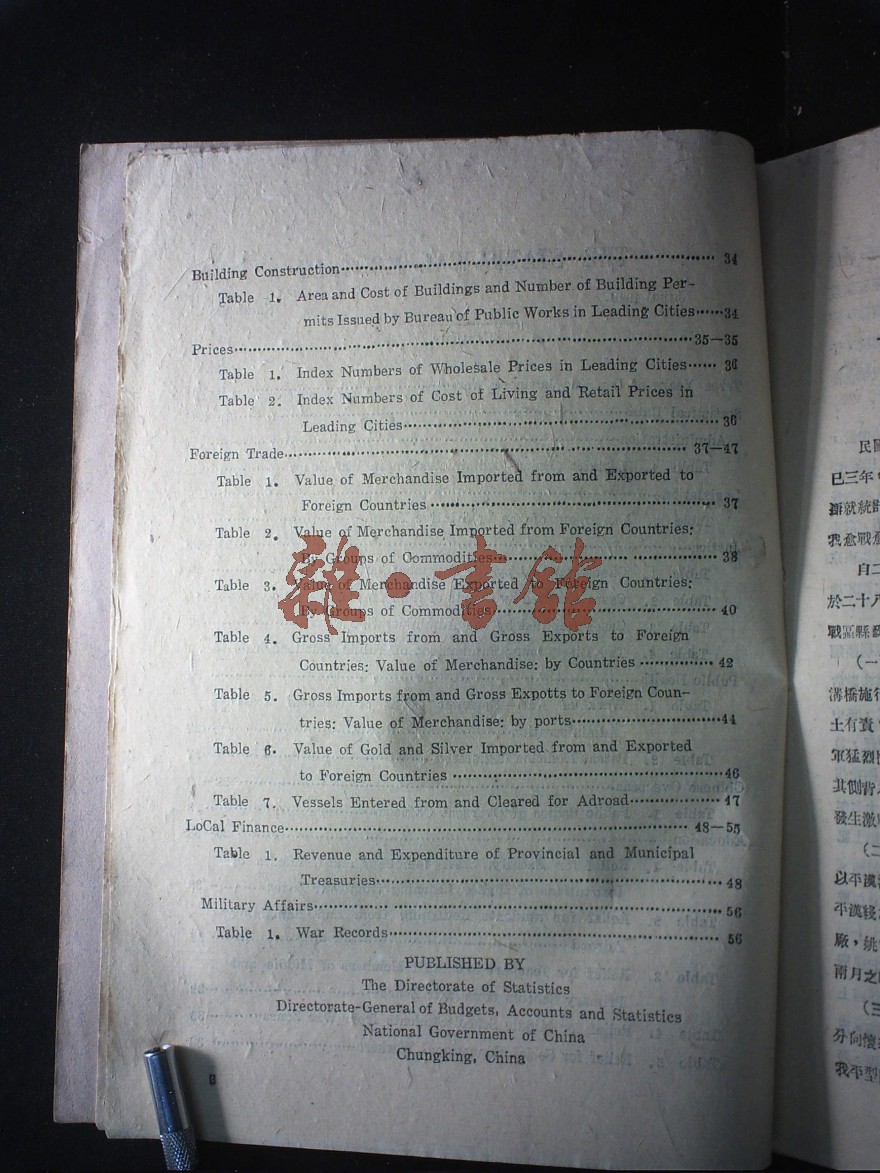 Building Construction 34
Table 1. Area and Cost of Buildings and Number of Building Per-
mits Issued by Bureau of Public Works in Leading Cities 34
Prices 35—35
Table 1. Index Numbers of Wholesale Prices in Leading Cities 36
Table 2. Index Numbers of Cost of Living and Retail Prices in
Leading Cities 36
Foreign Trade 37—47
Table 1. Value of Merchandise Imported from and Exported to
Foreign Countries 37
Table 2. Value of Merchandise Imported from Foreign Countries:
By Groups of Commodities 38
Table 3. Value of Merchandise Exported to Foreign Countries:
By Groups of Commodities 40
Table 4. Gross Imports from and Gross Exports to Foreign
Countries: Value of Merchandise: by Countries 42
Table 5. Gross Imports from and Gross Expotts to Foreign Coun-
tries: Value of Merchandise: by ports 44
Table 6. Value of Gold and Silver Imported from and Exported
to Foreign Countries 46
Table 7. Vessels Entered from and Cleared for Adroad 47
LoCal Finance 48—55
Table 1. Revenue and Expenditure of Provincial and Municipal
Treasuries 48
Military Affairs 56
Table 1. War Records 56
PUBLISHED BY
The Directorate of Statistics
Directorate-General of Budgets, Accounts and Statistics
National Government of China
Chungking, China
雜·書館
民國
已三年
我愈戰愈
自二
於二十八
戰區縣
(一
溝橋施行
土有責
軍猛烈
其側背
發生激
(二
以平漢
平漢綫
廠,姚
兩月之
(三
分向懷
我平型